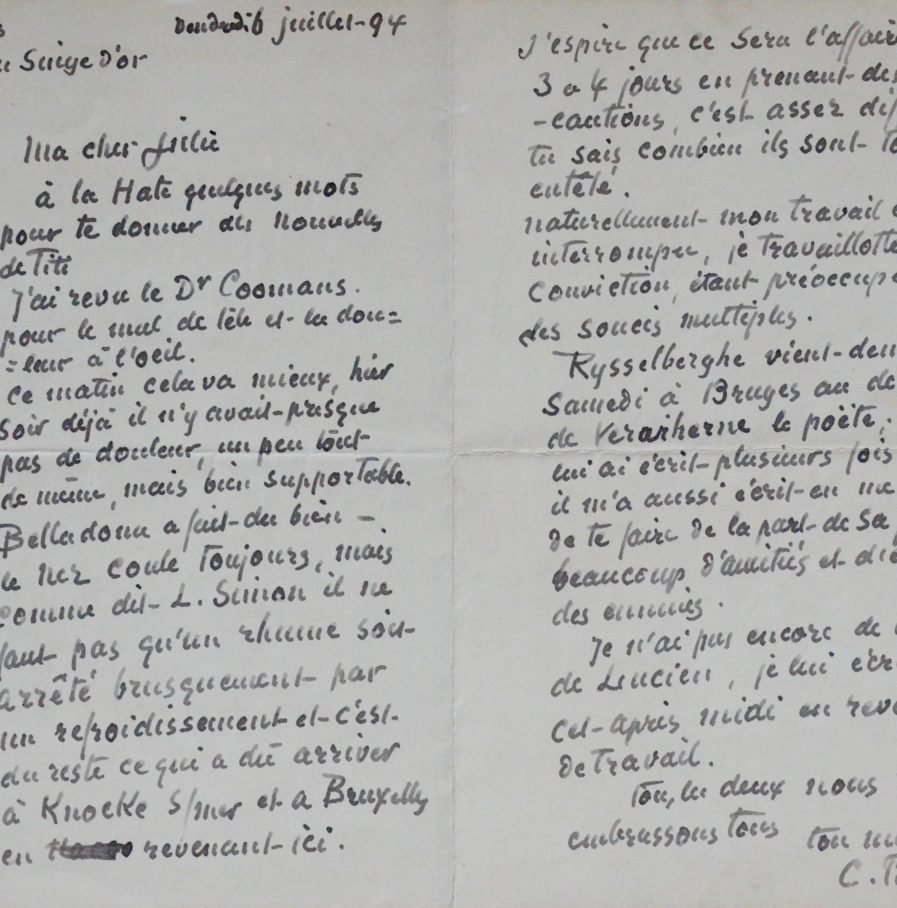 Vendredi 6 juillet - 94
Singe d'or
Ma cher Julie
à la Hate quelques mots
pour te donner des nouvelles
de Titi
J'ai revu le Dr Coomans.
pour le mal de tête et la dou=
=leur à l'oeil.
ce matin cela va mieux, hier
soir déjà il n'y avait presque
pas de douleur, un peu tout
de même, mais bien supportable.
Belladona a fait du bien -
le nez coule toujours, mais
comme dit L. Simon il ne
faut pas qu'un rhume soit
arrêté brusquement par
un refroidissement et c'est
du reste ce qui a dû arriver
à Knocke s/mer et a Bruxelles
en revenant ici.
J'espire que ce sera l'affair
3 a 4 jours en prenant des
-cautions, c'est assez dif
tu sais combien ils sont
entêlé.
naturellement mon travail
interrompu, je travaillotte
conviction, étant préoccupé
des soucis multiples.
Rysselberghe vient
Samedi à Bruges au
de Verarherne le poëte,
lui ai écrit plusieurs fois
il m'a aussi écrit en me
de te faire de la part de sa
beaucoup d'amitiés et
des ennuies.
Je n'ai pas encore de
de Lucien, je lui écri
cet après midi en reve
de travail.
Tous les deux nous
embrassons tous ton
C. P